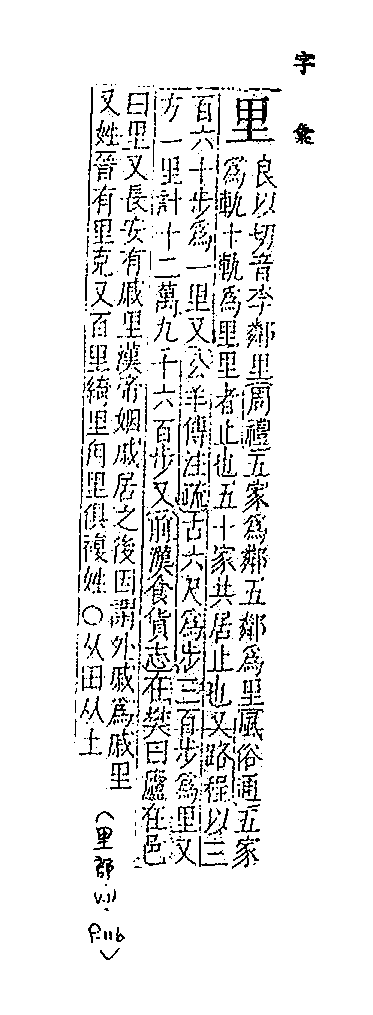 字彙
里
良以切音李鄰里周禮五家為鄰五鄰為里風俗通五家
為軌十軌為里里者止也五十家共居止也又路程以三
百六十步為一里又公羊傳注疏古六尺為步三百步為里又
方一里計十二萬九千六百步又前漢食貨志在埜曰廬在邑
曰里又長安有戚里漢帝姻戚居之後因謂外戚為戚里
又姓晉有里克又百里綺里甪里俱複姓○从田从土
(里部 v.11 p.116)